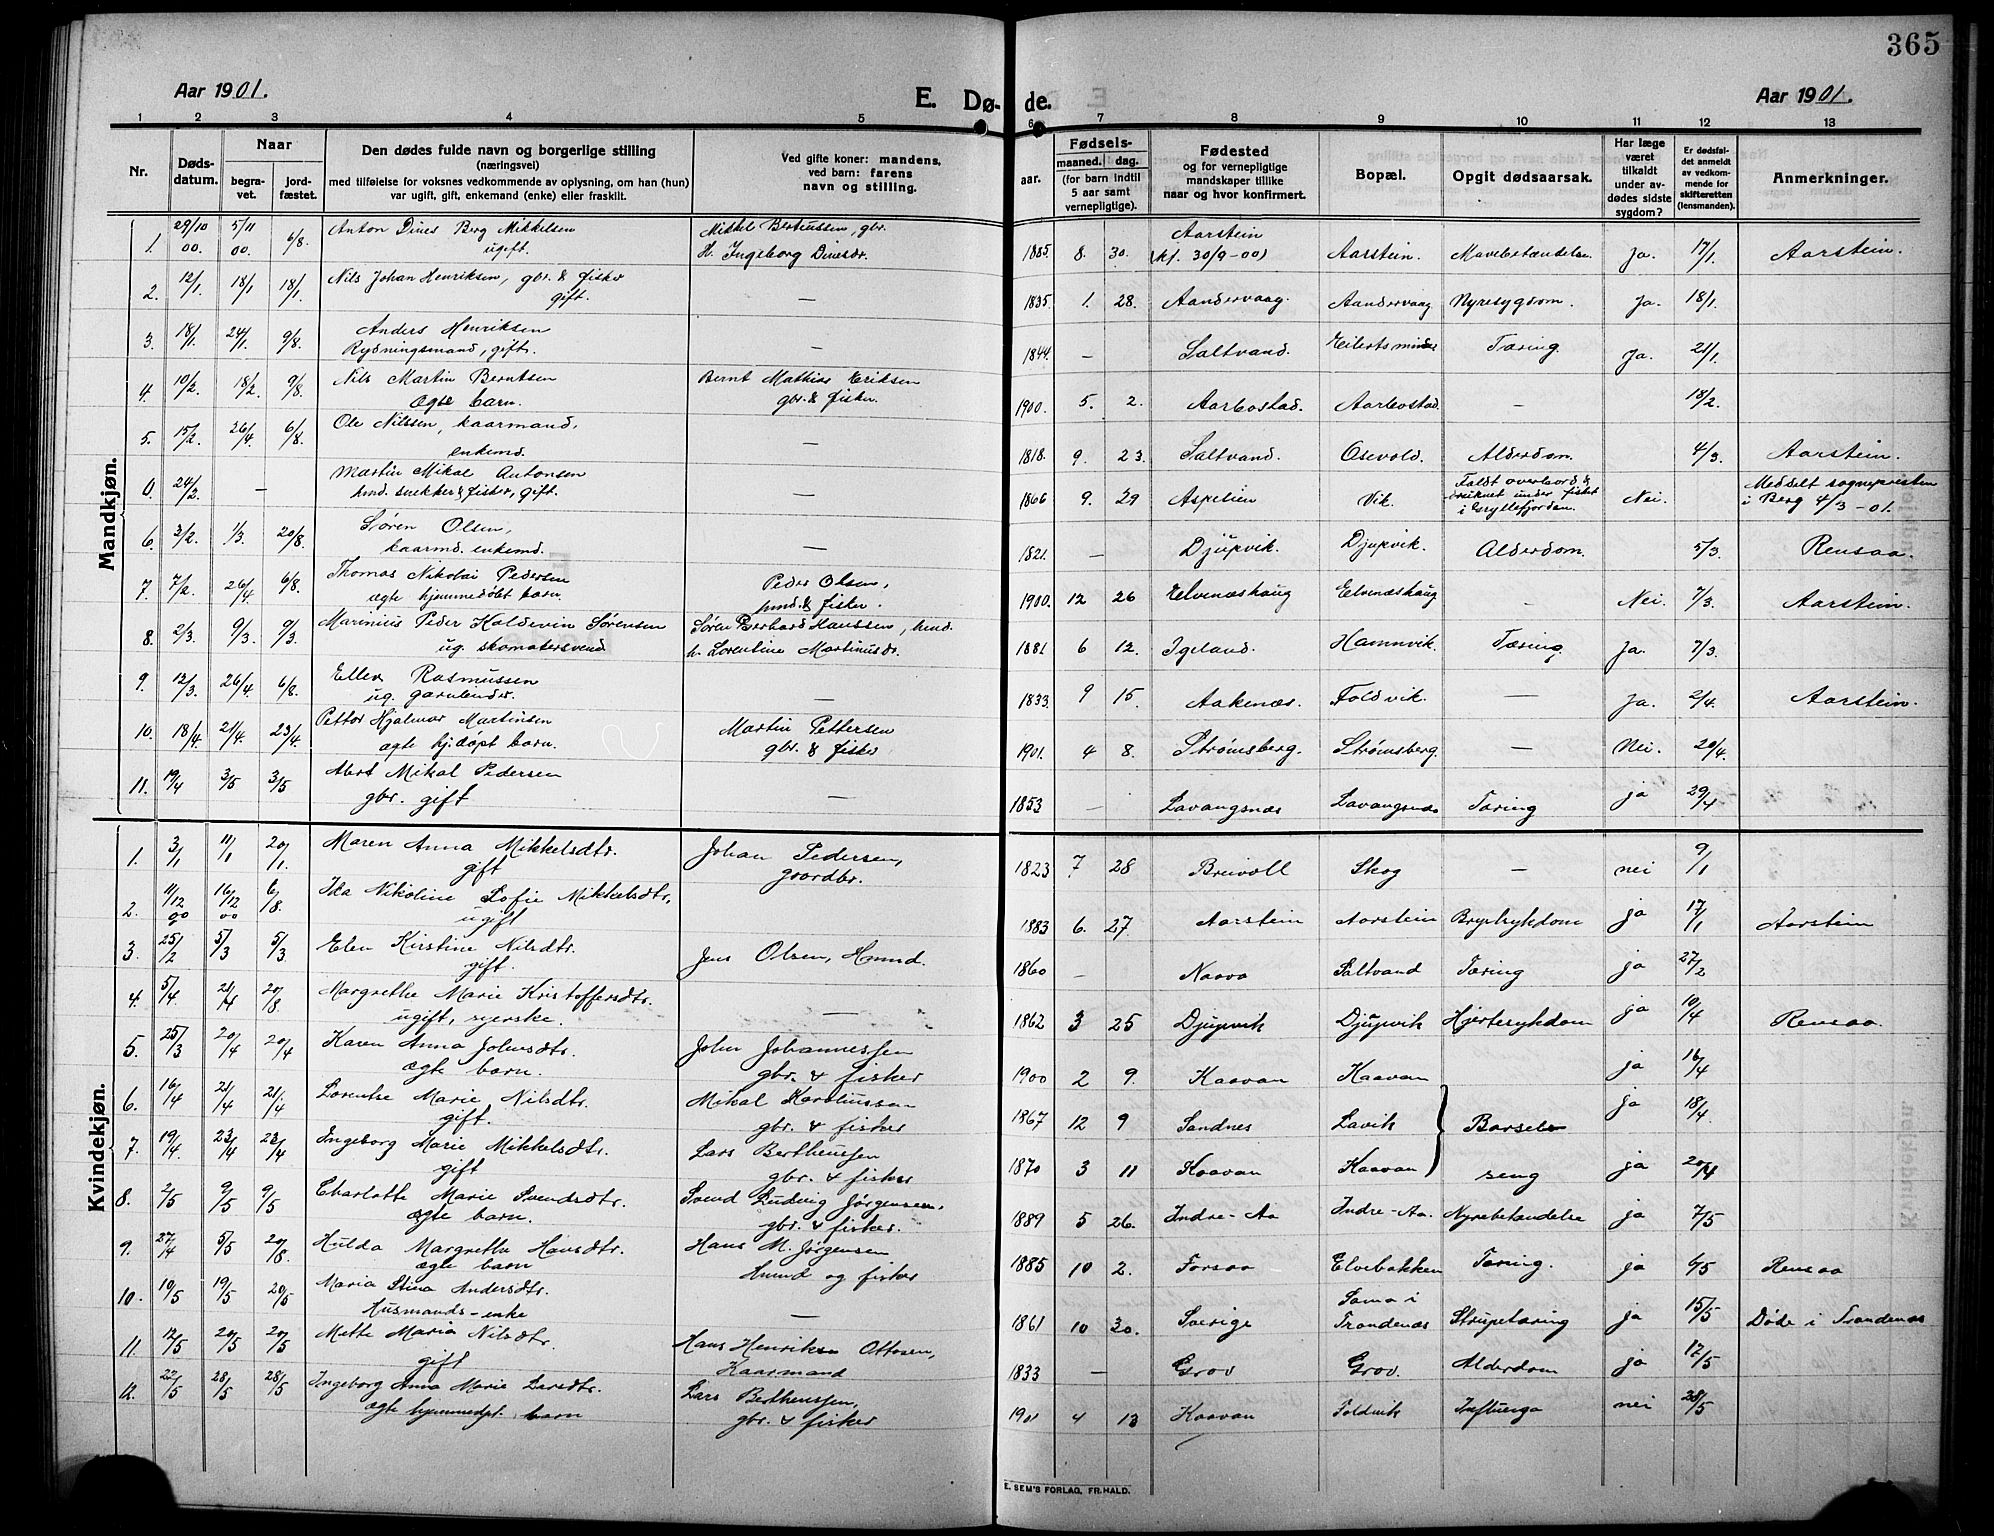 365
Aar 1901.
E. Dø- de.
Aar 1901.
1 2 3 4 5 6 7 8 9 10 11 12 13
Nr.
Døds-
datum.
Naar
begra-
vet.
jord-
fæstet.
Den dødes fulde navn og borgerlige stilling
(næringsvei)
med tilføielse for voksnes vedkommende av oplysning, om han (hun)
var ugift, gift, enkemand (enke) eller fraskilt.
Ved gifte koner: mandens,
ved barn: farens
navn og stilling.
Fødsels-
aar.
maaned. dag.
(for barn indtil
5 aar samt
vernepligtige).
Fødested
og for vernepligtige
mandskaper tillike
naar og hvor konfirmert.
Bopæl.
Opgit dødsaarsak.
Har læge
været
tilkaldt
under av-
dødes sidste
sygdom?
Er dødsfal-
det anmeldt
av vedkom-
mende for
skifteretten
(lensmanden).
Anmerkninger.
Mandkjøn.
1. 29/10 00. 5/11 00. 6/8. Anton Dines Berg Mikkelsen ugift. Mikkel Berteussen, gbr. H. Ingeborg Dinesdr. 1885. 8. 30. Aarstein (kf. 30/9-00) Aarstein. Mavebetændelse. Ja. 17/1. Aarstein.
2. 12/1. 18/1 18/1. Nils Johan Henriksen, gbr. & fisker gift. — 1835. 1. 28. Aandervaag. Aandervaag Nyresygdom. Ja. 18/1.
3. 18/1. 24/1. 9/8. Anders Henriksen Rydningsmand, gift. — 1844. — Saltvand. Eilertsminde Tæring. Ja. 21/1.
4. 10/2. 18/2. 9/8. Nils Martin Berntsen Ægte barn. Bernt Mathias Eriksen gbr. & fisker. 1900. 5. 2. Aarbostad. Aarbostad. — 18/2.
5. 15/2. 26/4. 6/8. Ole Nilssen, kaarmand, enkemd. — 1818. 9. 23. Saltvand. Osevold. Alderdom. 4/3. Aarstein.
0. 24/2. — Martin Mikal Antonsen hmd. snekker & fisker, gift. — 1866 9. 29 Aspelien Vik. Faldt overbord & druknet under fisket i Gryllefjorden. Nei. Meddelt sognepresten i Berg 4/3-01.
6. 3/2. 1/3. 20/8. Søren Olsen, kaarmd. enkemd. — 1821. — Djupvik. Djupvik. Alderdom. 5/3. Rensaa.
7. 7/2. 26/4. 6/8. Thomas Nikolai Pedersen ægte hjemmedøbt barn. Peder Olsen, hmd. & fisker. 1900. 12 26 Elvenæshaug Elvenæshaug — Nei. 7/3. Aarstein.
8. 2/3. 9/3. 9/3. Marinius Peder Koldevin Sørensen ug. skomakersvend. Søren Berhard Hanssen, hmd. h. Lorentine Martinusdr. 1881. 6 12. Igeland. Hamnvik. Tæring. Ja. 7/3.
9. 12/3. 26/4. 6/8. Ellev Rasmussen ug. garnbinder. — 1833. 9 15. Aakenæs. Foldvik. — Ja. 2/4. Aarstein.
10. 18/4. 21/4. 23/4. Petter Hjalmar Martinsen ægte hj.døpt barn. Martin Pettersen gbr. & fisker 1901. 4 8. Strømsberg. Strømsberg. — Nei. 20/4.
11. 19/4 3/5 3/5 Abert Mikal Pedersen gbr. gift — 1853 — Lavangsnæs Lavangsnæs Tæring ja 29/4
Kvindekjøn.
1. 3/1 11/1 20/1. Maren Anna Mikkelsdtr. gift Johan Pedersen, gaardbr. 1823 7 28 Breivoll Skog — nei 9/1
2. 11/12 00 16/12 00 6/8 Ida Nikoline Sofie Mikkelsdtr, ugift 1883 6. 27 Aarstein Aarstein Brystsykdom ja 17/1 Aarstein
3. 25/2 5/3 5/3. Elen Kirstine Nilsdtr. gift. Jens Olsen, Hmnd. 1860 — Naava Saltvand Tæring ja 27/2
4. 5/4 21/4 20/8. Margrethe Marie Kristoffersdtr. ugift, syerske. — 1862 3 25 Djupvik Djupvik Hjertesykdom ja 10/4 Rensaa.
5. 25/3 20/4 20/4 Karen Anna Johnsdtr. ægte barn. John Johannessen gbr. & fisker 1900 2 9. Kaavan Kaavan ja 16/4
6. 16/4 21/4 21/4 Lorentse Marie Nilsdtr. gift. Mikal Karoliussen gbr. & fisker 1867 12 9 Sandnes Lavik Barsel- ja 18/4
7. 19/4. 23/4 23/4 Ingeborg Marie Mikkelsdtr. gift Lars Bertheussen gbr. & fisker 1870 3 11 Kaavan Kaavan seng ja 20/4
8. 2/5 9/5 9/5 Charlotte Marie Svendsdtr. ægte barn. Svend Ludvig Jørgensen, gbr. & fisker. 1889 5 26. Indre-Aa Indre-Aa. Nyrebetændelse ja 7/5
9. 27/4 5/5 20/8. Hulda Margrethe Hansdtr. ægte barn Hans M. Jørgensen Hmnd og fisker 1885 10 2. Forsaa Elvebakken Tæring. ja 6/5 Rensaa
10. 10/5 19/5 20/5 Maria Stina Andersdtr. Husmands-enke — 1861 10 30. Sverige Sama i Trondenæs Strupetæring ja 15/5 Døde i Trondenæs
11. 12/5 20/5 20/5. Mette Maria Nilsdtr. gift Hans Henriksen Ottosen, Kaarmand 1833 — Grov Grov. Alderdom ja 17/5
12. 22/5 28/5 28/5 Ingeborg Anna Marie Larsdtr. ægte hjemmedpt. barn Lars Bertheussen, gbr. & fisker 1901 4 13 Kaavan Foldvik Influenza nei 28/5
E. SEM'S FORLAG, FR.HALD.